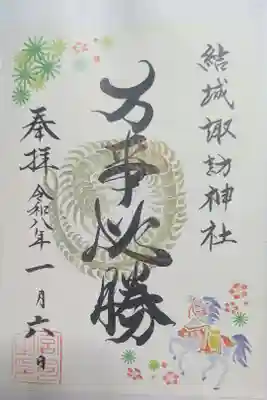 結城諏訪神社
万事必勝
奉拝 令和八年 一月六日